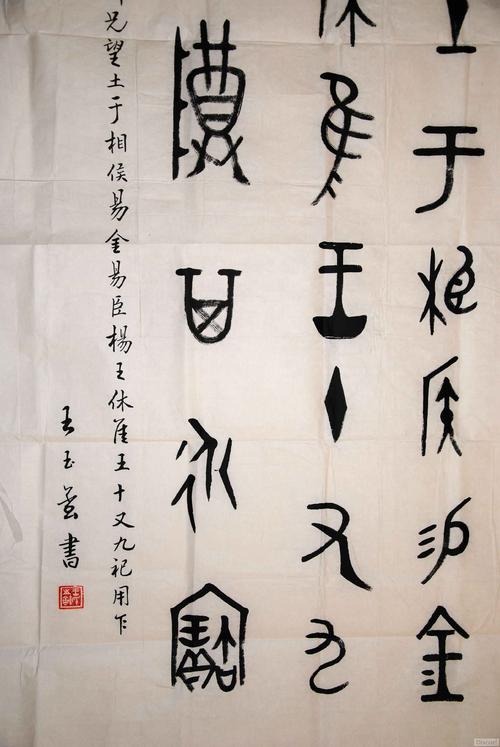 土于相侯易金
休隹王十又九
障其永寶
兄望土于相侯易金易臣楊王休隹王十又九祀用乍
王玉書